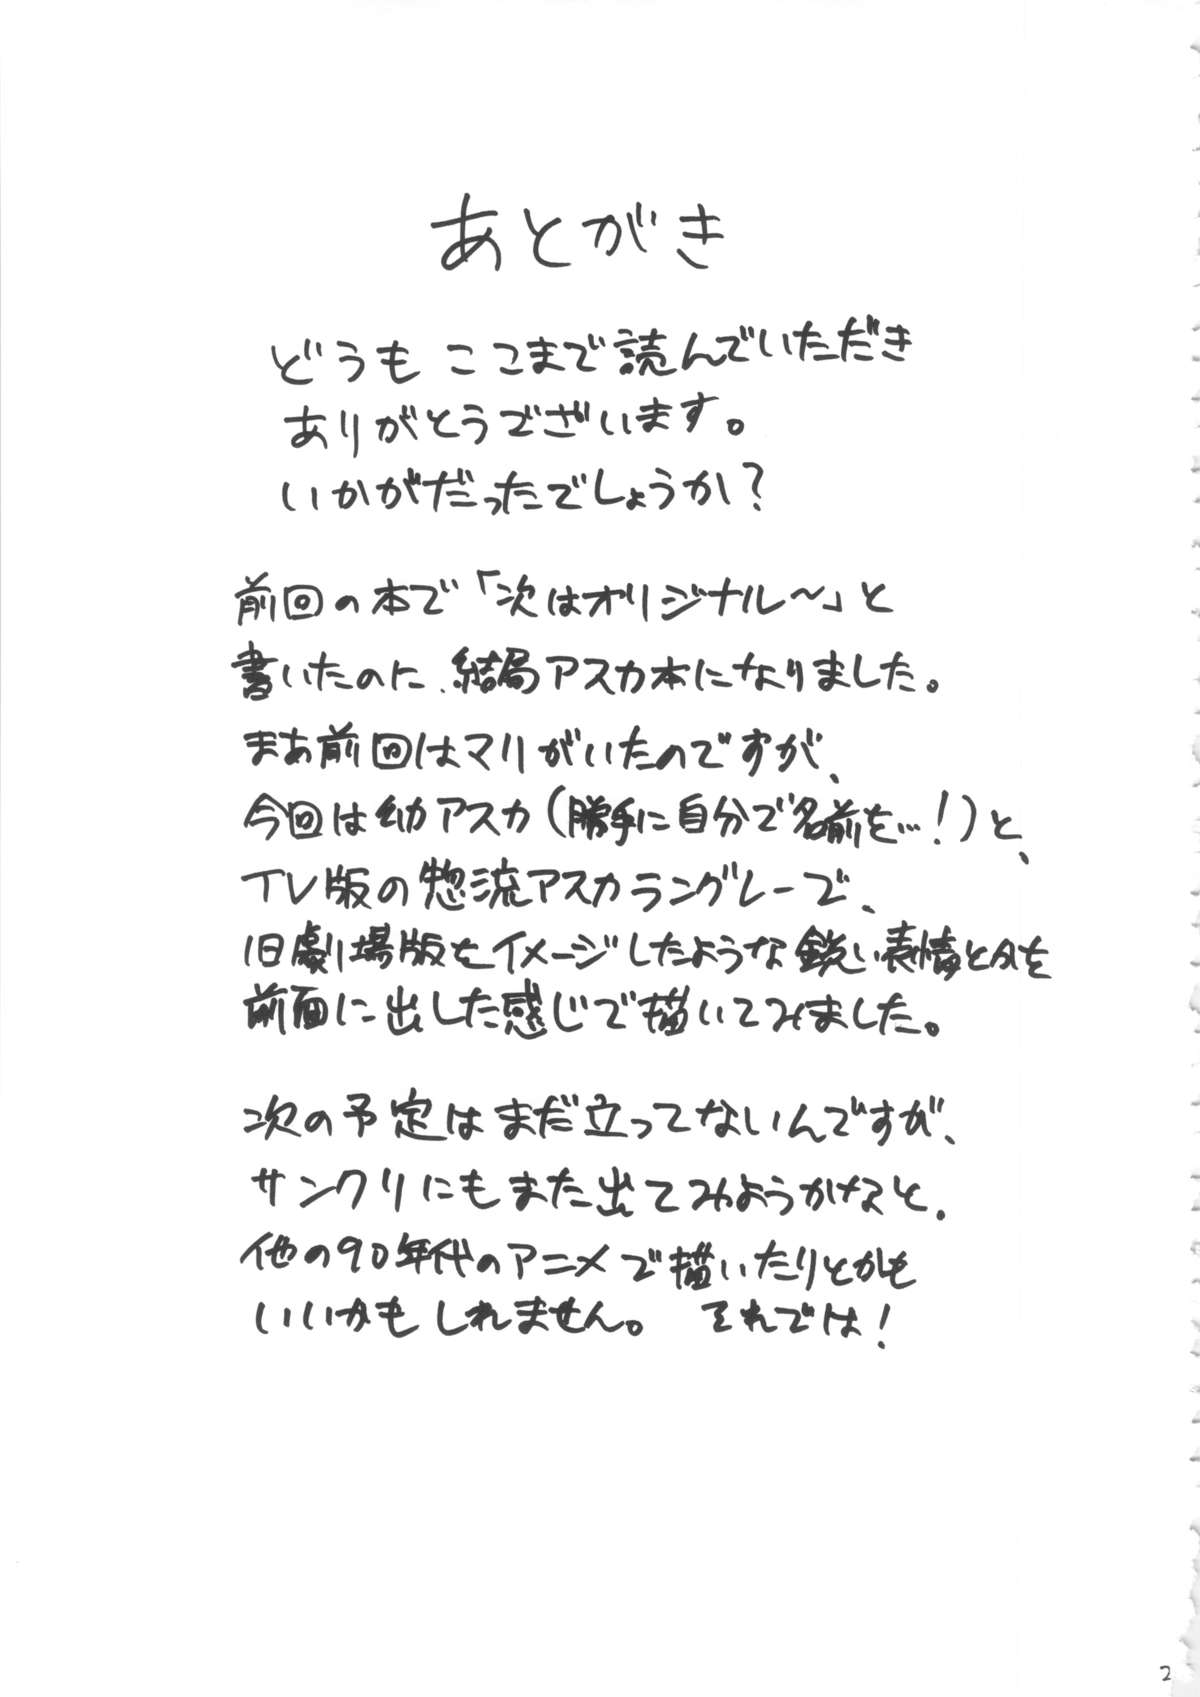 あとがき
どうも ここまで読んでいただき
ありがとうございます。
いかがだったでしょうか?
前回の本で「次はオリジナル〜」と
書いたのに、結局アスカ本になりました。
まあ前回はマリがいたのですが、
今回は幼アスカ(勝手に自分で名前を…!)と、
TV版の惣流アスカラングレーで、
旧劇場版をイメージしたような鋭い表情と〆を
前面に出した感じで描いてみました。
次の予定はまだ立ってないんですが、
サンクリにもまた出てみようかなと、
他の90年代のアニメで描いたりとかも
いいかもしれません。 それでは!
2